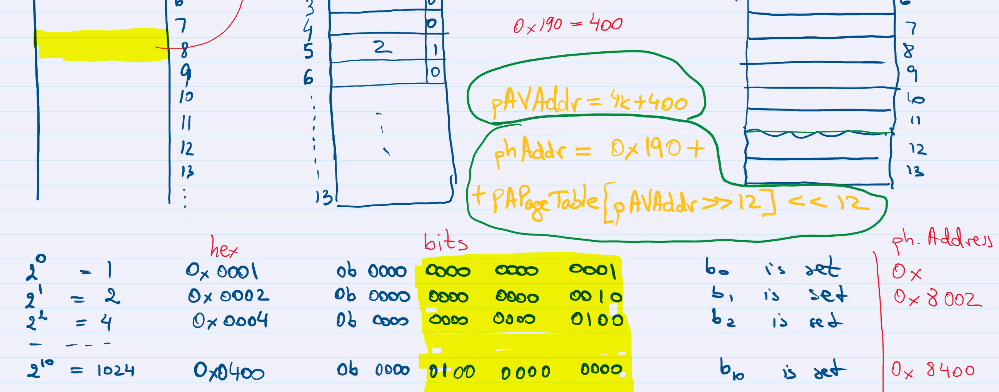 6
7
8
9
10
11
12
13
3
4
5
6
13
0
0
2 1
0
0x190 = 400
pAVAddr = 4k+400
phAddr = 0x190 +
+ pAPageTable[pAVAddr>>12] << 12
6
7
8
9
10
11
12
13
hex bits ph. Address
2^0 = 1 0x0001 0b 0000 0000 0000 0001 b0 is set 0x
2^1 = 2 0x0002 0b 0000 0000 0000 0010 b1 is set 0x8002
2^2 = 4 0x0004 0b 0000 0000 0000 0100 b2 is set
2^10 = 1024 0x0400 0b 0000 0100 0000 0000 b10 is set 0x8400